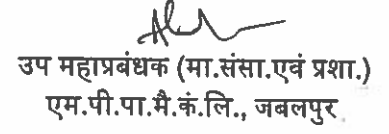 उप महाप्रबंधक (मा.संसा.एवं प्रशा.)
एम.पी.पा.मै.कं.लि., जबलपुर